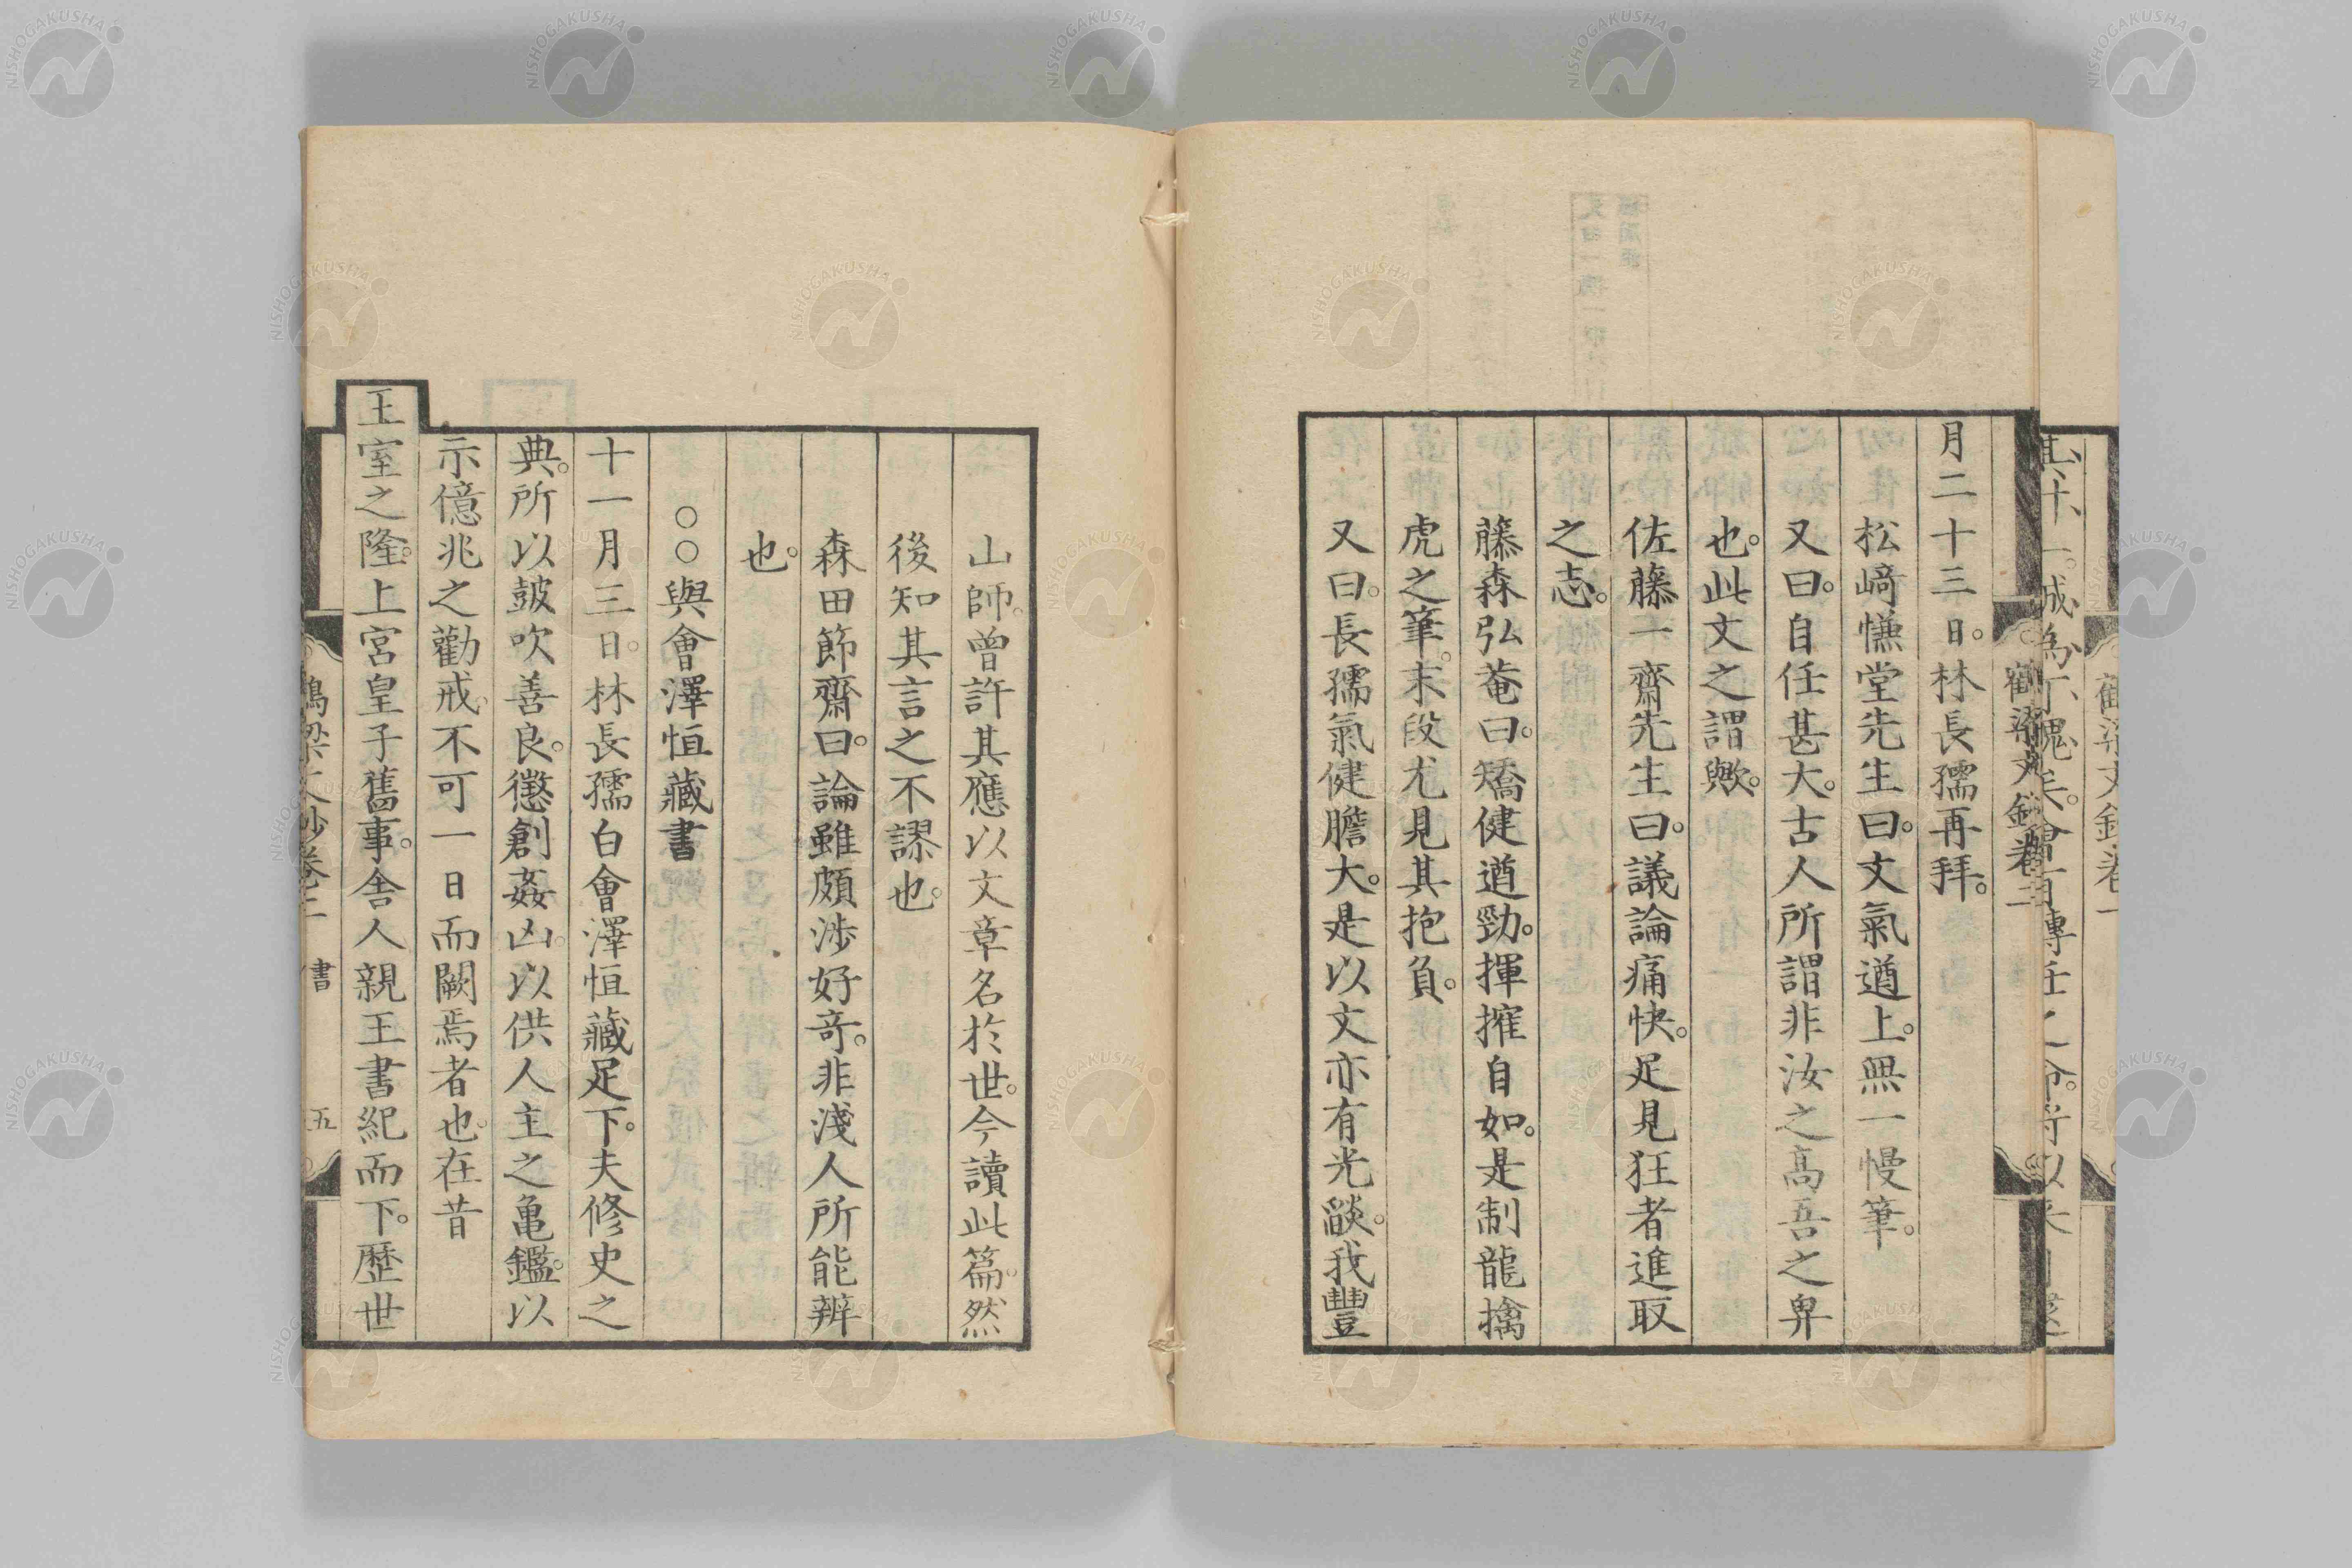 月二十三日。林長孺再拜。
松﨑慊堂先生曰。文氣遒上。無一慢筆。
又曰。自任甚大。古人所謂非汝之高吾之卑
也。此文之謂歟。
佐藤一齋先生曰。議論痛快。足見狂者進取
之志。
藤森弘菴曰。矯健遒勁。揮搉自如。是制龍擒
虎之筆。末段尤見其抱負。
又曰。長孺氣健膽大。是以文亦有光燄。我豐
山師。曾許其應以文章名於世。今讀此篇。然
後知其言之不謬也。
森田節齋曰。論雖頗涉好奇。非淺人所能辨
也。
○○與會澤恒藏書
十一月三日。林長孺白會澤恒藏足下。夫修史之
典。所以皷吹善良。懲創姦凶。以供人主之亀鑑。以
示億兆之勸戒。不可一日而闕焉者也。在昔
王室之隆。上宮皇子舊事。舍人親王書紀而下。歷世
鶴梁文鈔卷二 書 五